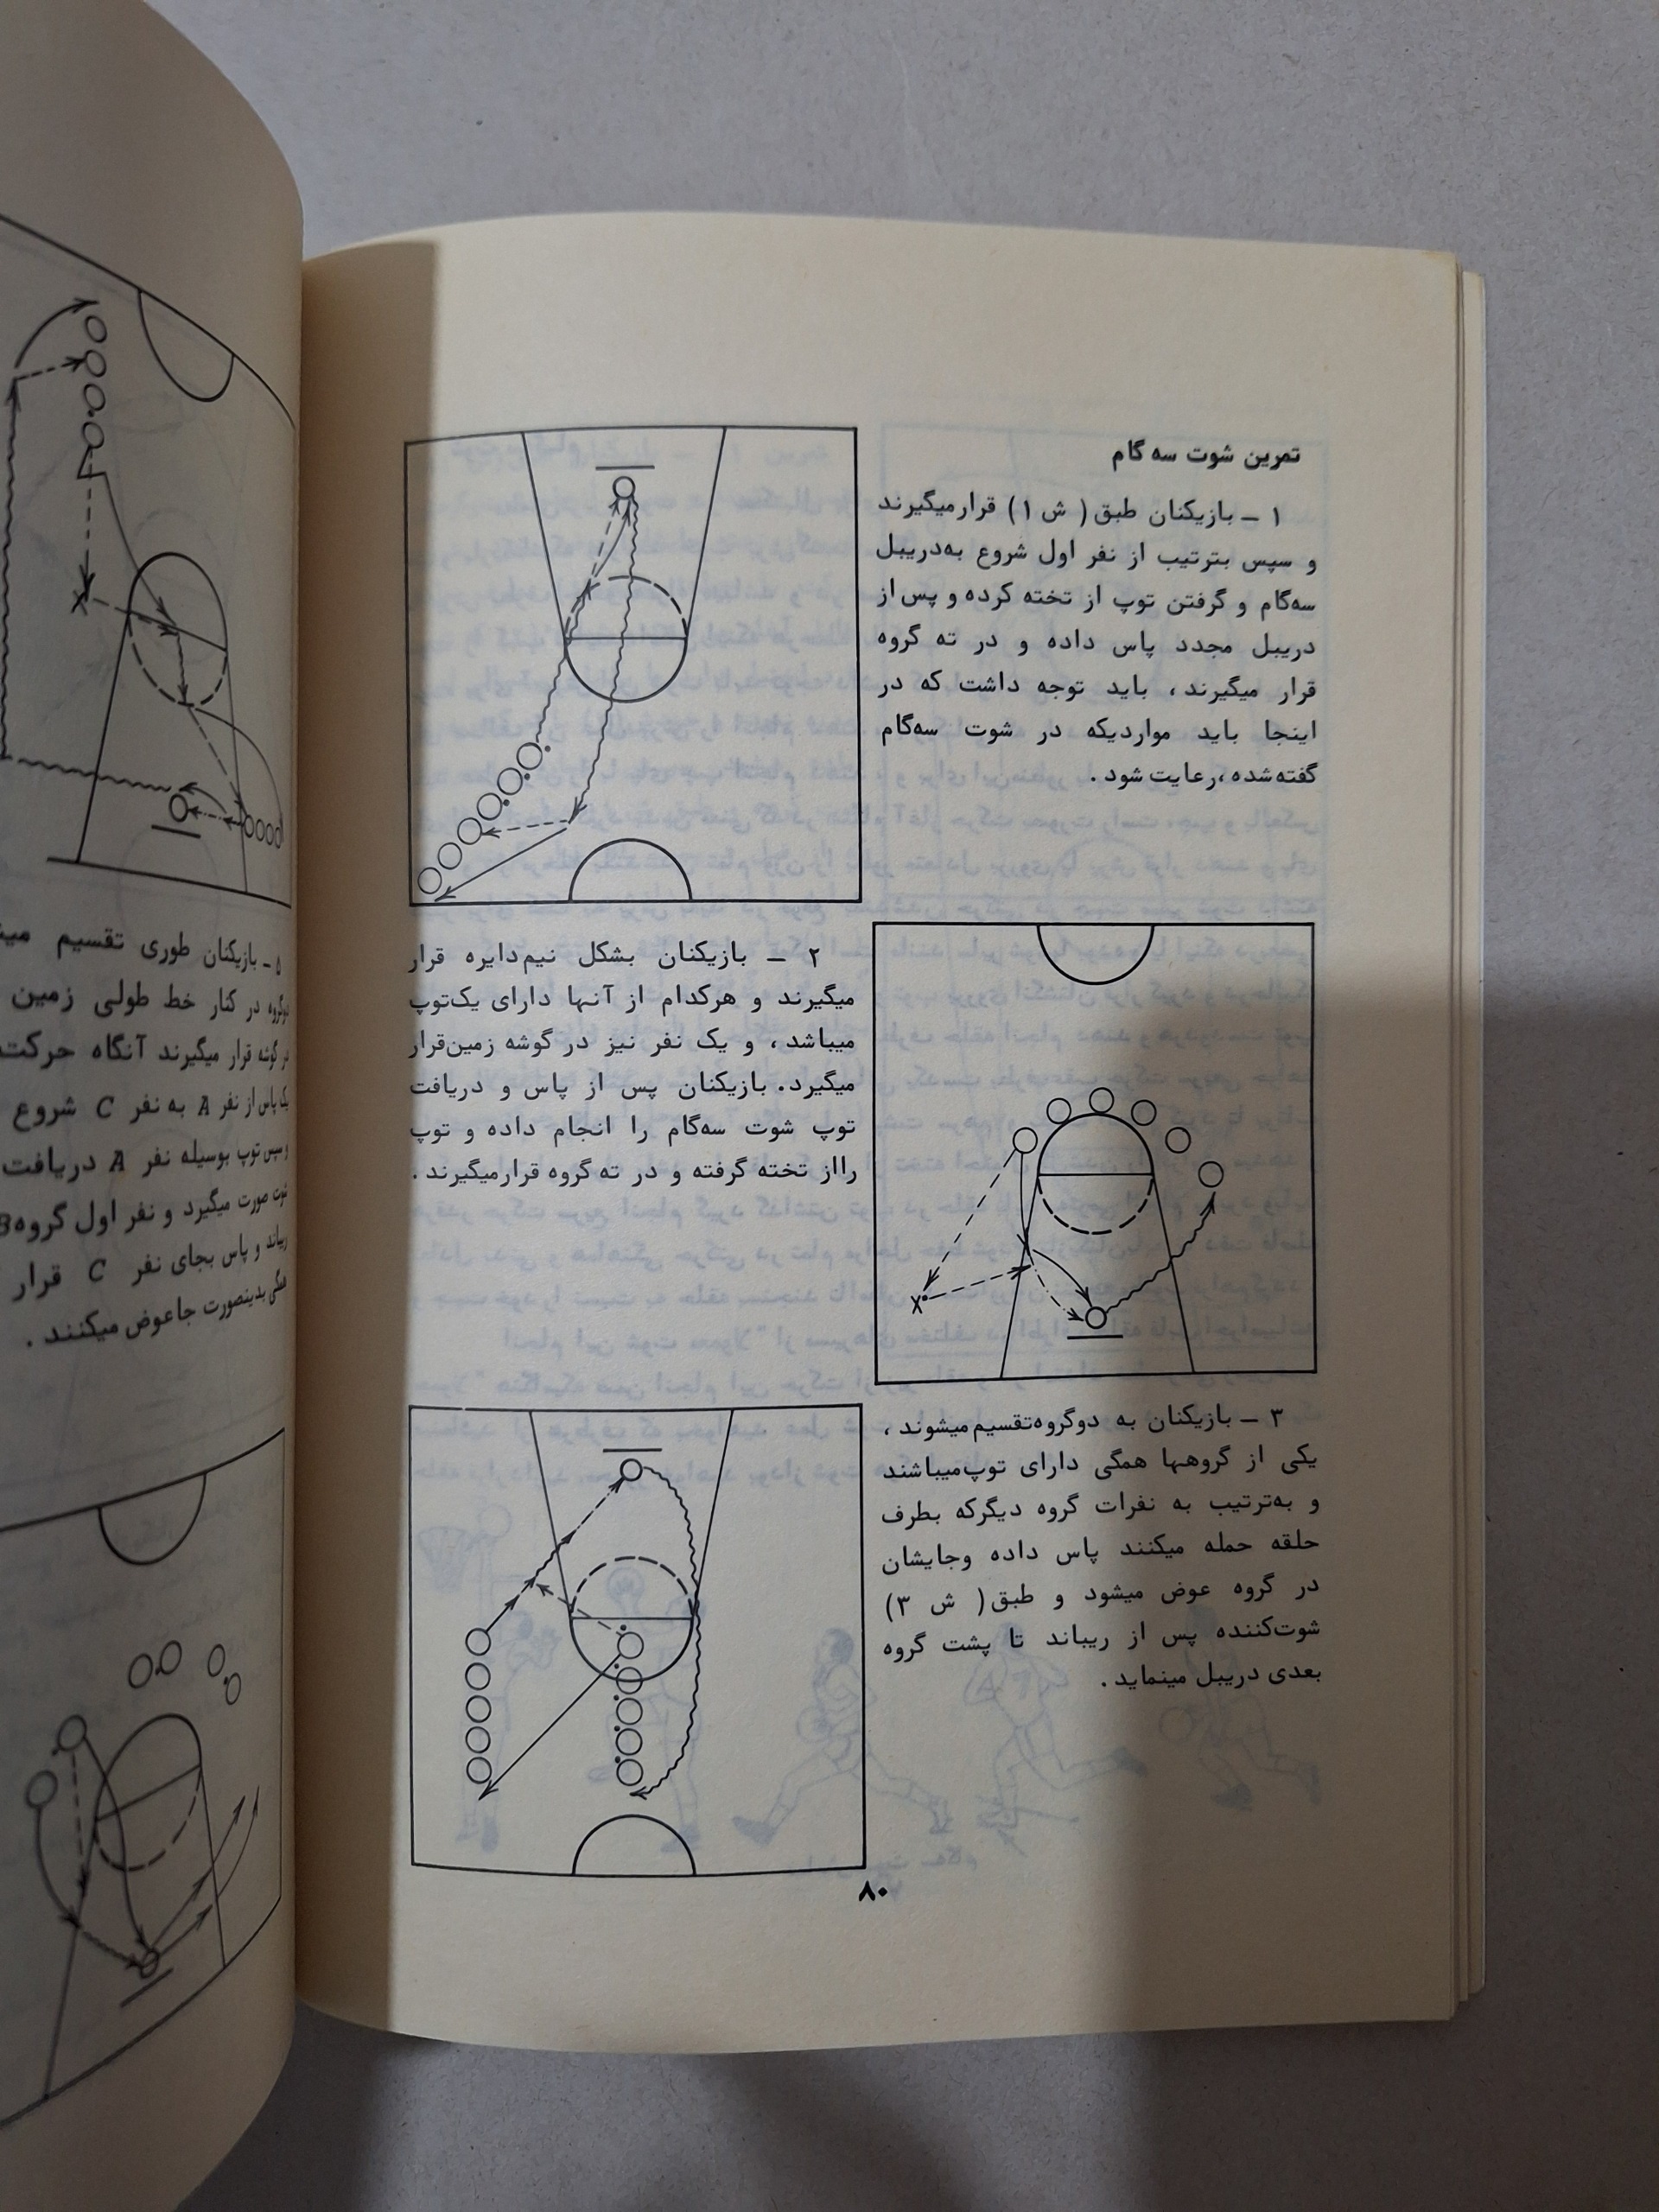 تمرین شوت سه گام
۱ ـ بازیکنان طبق ( ش ۱ ) قرار میگیرند
و سپس بترتیب از نفر اول شروع به‌دریبل
سه‌گام و گرفتن توپ از تخته کرده و پس از
دریبل مجدد پاس داده و در ته گروه
قرار میگیرند ، باید توجه داشت که در
اینجا باید مواردیکه در شوت سه‌گام
گفته شده ،رعایت شود .
۲ ـ بازیکنان بشکل نیم‌دایره قرار
میگیرند و هرکدام از آنها دارای یک‌توپ
میباشد ، و یک نفر نیز در گوشه زمین‌قرار
میگیرد. بازیکنان پس از پاس و دریافت
توپ شوت سه‌گام را انجام داده و توپ
رااز تخته گرفته و در ته گروه قرارمیگیرند .
X
۳ ـ بازیکنان به دوگروه‌تقسیم میشوند ،
یکی از گروهها همگی دارای توپ‌میباشند
و به‌ترتیب به نفرات گروه دیگرکه بطرف
حلقه حمله میکنند پاس داده وجایشان
در گروه عوض میشود و طبق ( ش ۳ )
شوت‌کننده پس از ریباند تا پشت گروه
بعدی دریبل مینماید .
۸۰
X
۵ ـ بازیکنان طوری تقسیم
در کنار خط طولی زمین
گوشه قرار میگیرند آنگاه حرکت
یک پاس از نفر A به نفر C شروع
و سپس توپ بوسیله نفر A دریافت
شوت صورت میگیرد و نفر اول گروه B
ریباند و پاس بجای نفر C قرار
همگی بدینصورت جاعوض میکنند .